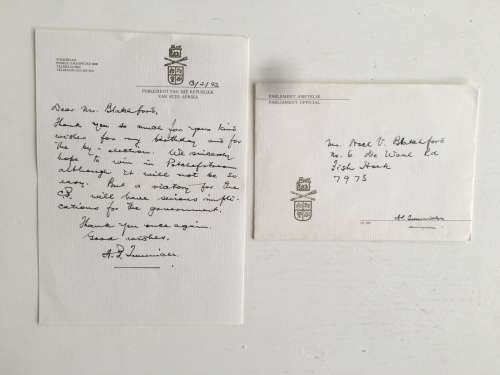 VOLKSRAAD
13/2/92
PARLEMENT VAN DIE REPUBLIEK
VAN SUID-AFRIKA
Dear Mr. Blakeford,
Thank you so much for your kind
wishes for my birthday and for
the by-election. We sincerely
hope to win in Potchefstroom
although it will not be so
easy. But a victory for the
C.P. will have serious impli-
cations for the government.
Thank you once again.
Good wishes.
PARLEMENT AMPTELIK
PARLIAMENT OFFICIAL
Mr. V. Blakeford
No. 6 de Waal Rd
Fish Hoek
7975